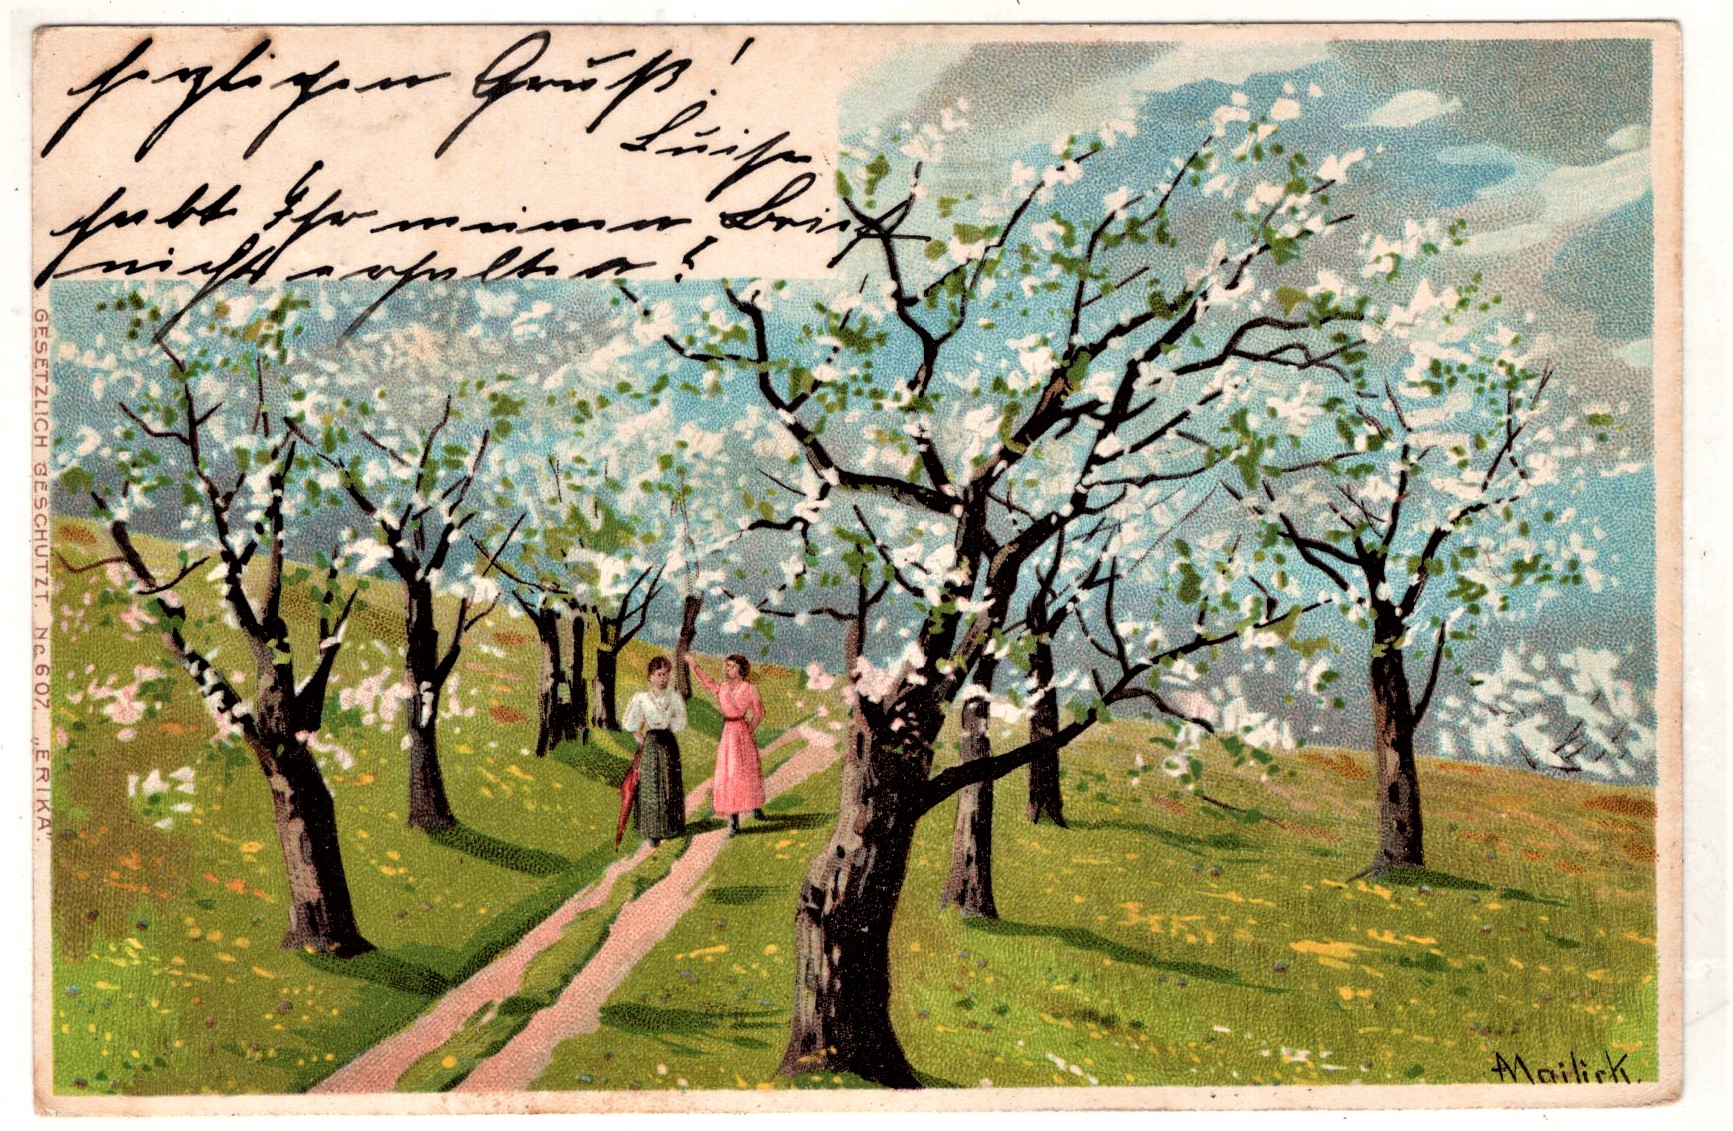 herzlichen Gruß!
Luise
habt Ihr meinen Brief
nicht erhalten?
GESETZLICH GESCHÜTZT. Nr. 607. „ERIKA".
A Mailick.